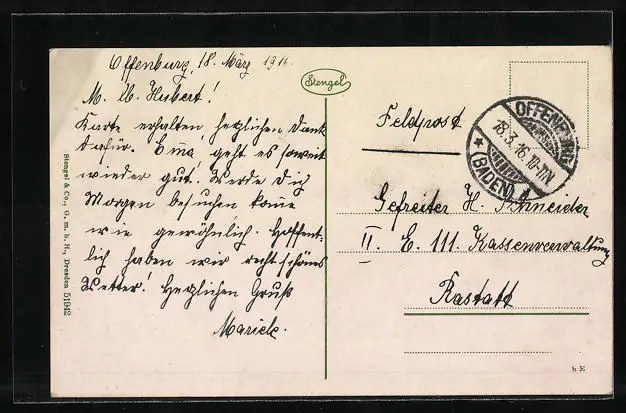 Offenburg, 18. März 1916
M. lb. Hubert!
Karte erhalten, herzlichen Dank
dafür. Emma geht es soweit
wieder gut. Werde Dich
Morgen besuchen komme
wie gewöhnlich. Hoffent-
lich haben wir recht schönes
Wetter! Herzlichen Gruß
Marick.
Stengel
Stengel & Co., G. m. b. H., Dresden 51942
Feldpost
OFFENBURG
18.3.16.10-11V.
* (BADEN) 1
Gefreiter H. Schneider
II. E. 111. Kassenverwaltung
Rastatt
h E